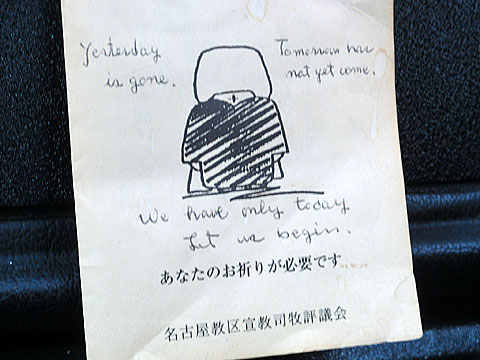 Yesterday
is gone.
Tomorrow has
not yet come.
We have only today
Let us begin.
あなたのお祈りが必要です
名古屋教区宣教司牧評議会